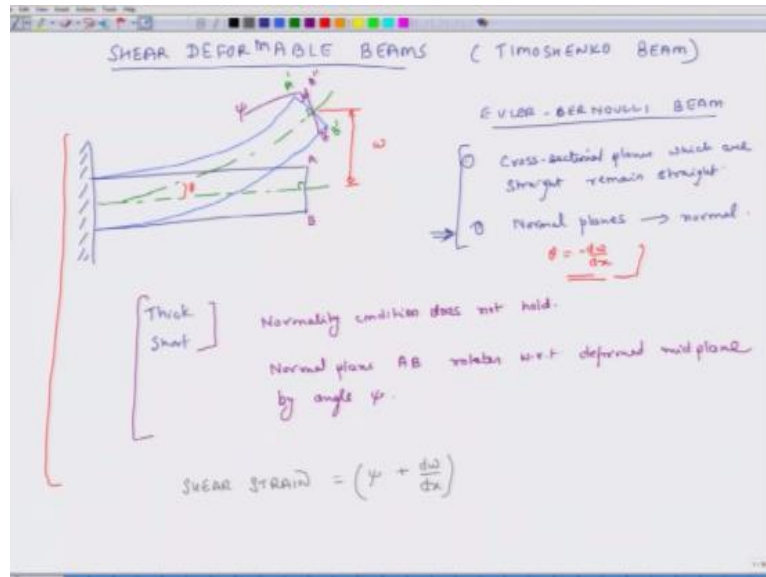 SHEAR DEFORMABLE BEAMS ( TIMOSHENKO BEAM)
EULER - BERNOULLI BEAM
Cross-sectional planes which are
straight remain straight.
Normal planes → normal.
θ = -dw/dx
ψ
A' A"
B'
w
θ
A
B
Thick
Short
Normality condition does not hold.
Normal plane AB rotates w.r.t deformed mid plane
by angle ψ.
SHEAR STRAIN = (ψ + dw/dx)